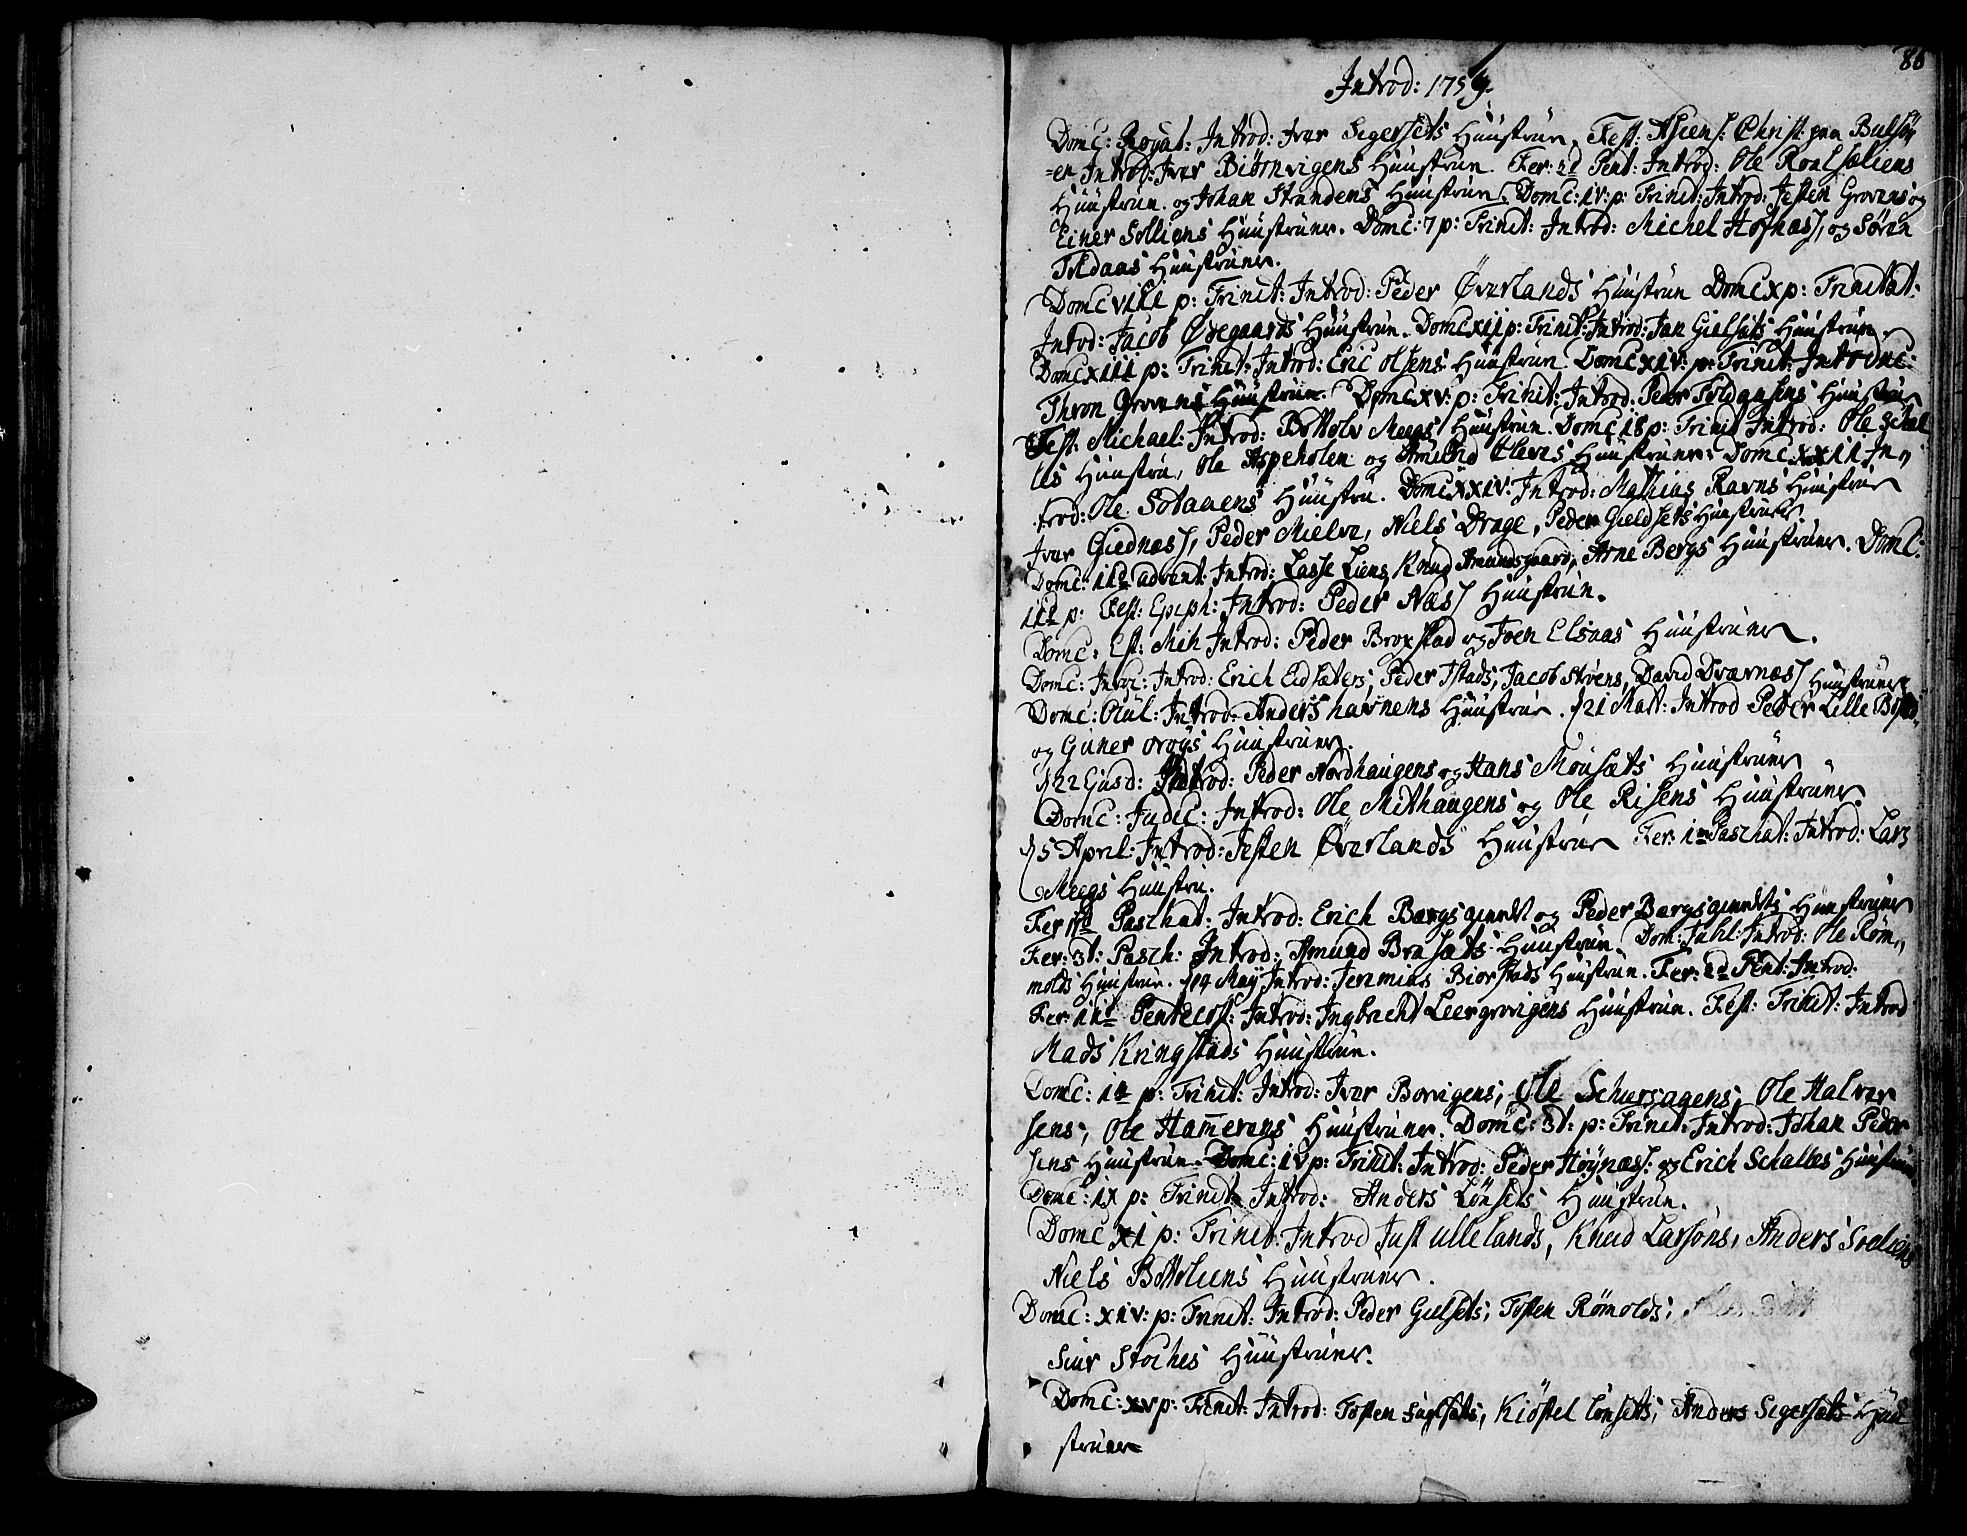 86
Introd: 1759.
Domc: Rogat: Introd: Ivar Segersets Huustrue. Fest: Ascens: Christ: paa Bulsöy
=en Introd: Ivar Biörnvigens Huustrue. Fer: 2d Pent: Introd: Ole Roalsæliens
Huustrue. og Johan Strandens Huustrue. Domc: iv: p: Trinit: Introd: Josten Grovens og
Einer Solliens Huustruer. Domc: 7 p: Trinit: Introd: Michel Hofnæs, og Sören
Foldaas Huustruer.
Domc viii p: Trinit: Introd: Peder Överlands Huustrue Domc x p: Trinitat:
Introd: Jacob Ödegaards Huustrue. Domc xii p: Trinit: Introd: Jan Gielsets Huustrue.
Domc xiii p: Trinit: Introd: Eric Olsens Huustrue Domc xiv: p: Trinit: Introduc:
Thron Grovens Huustrue. Domc xv: p: Trinit: Introd: Peder Foldaasens Huustrue
Fest: Michael: Introd: Bottolv Meegs Huustrue. Domc 18 p: Trinit Introd: Ole Schal
les Huustru, Ole Aspeholen og Amund Cleves Huustruer. Domc xxii In,,
trod: Ole Solauens Huustru. Domc xxiv: Introd: Mathias Ravns Huustrue
Ivar Giednæs, Peder Mielve, Niels Drage, Peder Gieldsets Huustruer
Domc: iid advent: Introd: Lasse Liens, Knud Amundsgaard, Arne Bergs Huustruer. Domc:
iid p: Fest: Epiph: Introd: Peder Næs Huustrue.
Domc: Est: Mih Introd: Peder Broxstad og Joen Elsaas Huustruer.
Domc: Invoc: Introd: Erich Eidsæters, Peder Istads, Jacob Stövens, David Dværnæs Huustruer
Domc: Ocul: Introd: Anders havnens Huustrue. d 21 Mart: Introd Peder Lille Bolsö
og Guner oröys Huustruer.
d 22 Ejusd: Introd: Peder Nordhaugens og Hans Mousæts Huustruer
Domc: Judic: Introd: Ole Mithaugens og Ole Risens Huustruer.
d 5 April: Introd: Josten Överlands Huustrue Fer: 1a Paschat: Introd: Lars
Meegs Huustru.
Fer iid Paschat: Introd: Erich Bærgs og Peder Bærgs Huustruer
Fer: 3t: Pasch: Introd: Amund Brusæts Huustrue. Dom: Jubil: Introd: Ole Röm,,
molds Huustrue. d 14 Maij Introd: Jeremias Biorstads Huustrue. Fer: 2d Pent: Introd:
Fer: iid Pentecost: Introd: Ingbricht Leergrovigens Huustrue. Fest: Trinit: Introd
Mads Kringstads Huustrue.
Domc: 1a p: Trinit: Introd: Ivar Borvigens, Ole Schursagens, Ole Halvor
sens, Ole Hamerens Huustruer. Domc: 3t: p: Trinit: Introd: Johan Peder
sens Huustrue. Domc: iv p: Trinit: Introd: Peder Höynæs: og Erich Schalles Huustrue
Domc: ix p: Trinit Introd: Anders Lönsets Huustrue.
Domc xi p: Trinit: Introd Just Ullelands, Knud Larsöns, Anders Soeliens
Niels Bottoliens Huustruer.
Domc: xiv: p: Trinit: Introd: Peder Gielsets, Tosten Römolds,
Siur Stoches Huustruer.
Domc: xv p: Trinit: Introd: Tosten Suglsæts, Kiöstel Lönsets, Anders Segersæts Huu
struer